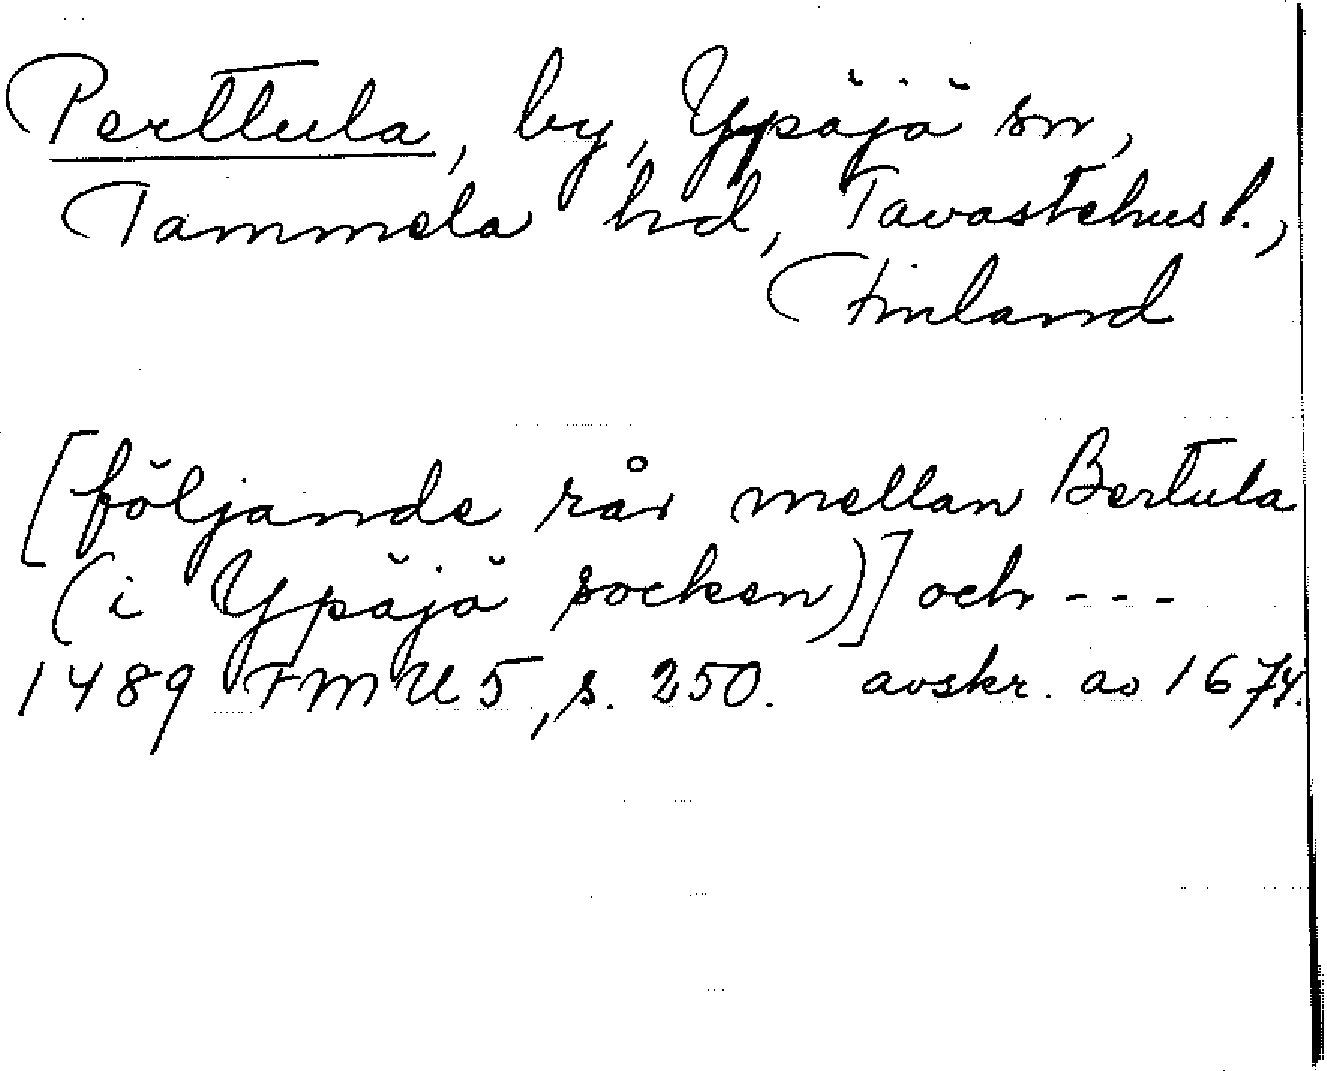 Perttula, by, Ypäjä sn,
Tammela hd, Tavastehus l.,
Finland
[följande rår mellan Bertula
(i Ypäjä socken)] och - - -
1489 FMU 5, s. 250. avskr. av 1674.